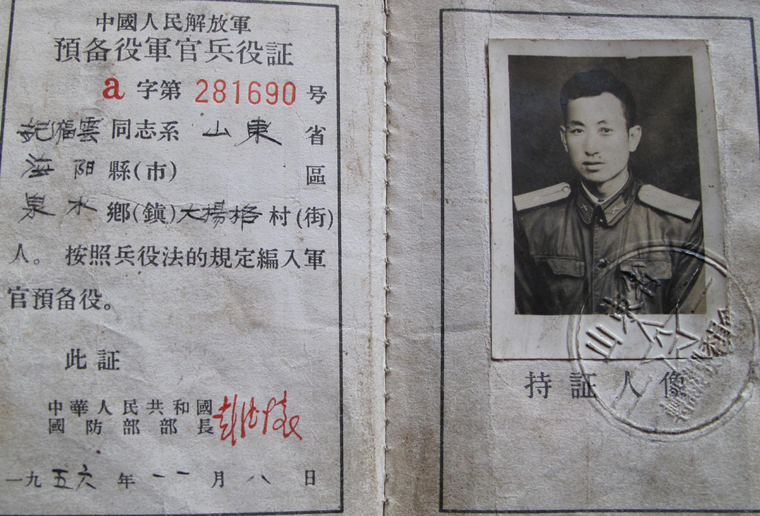 中國人民解放軍
預备役軍官兵役証
a 字第 281690 号
福雲同志系 山東 省
海阳縣(市) 區
泉水 鄉(鎮)大楊格村(街)
人。按照兵役法的規定編入軍
官預备役。
此証
中華人民共和國
國防部部長 彭德懷
一九五六年一一月八日
持証人像
山東省